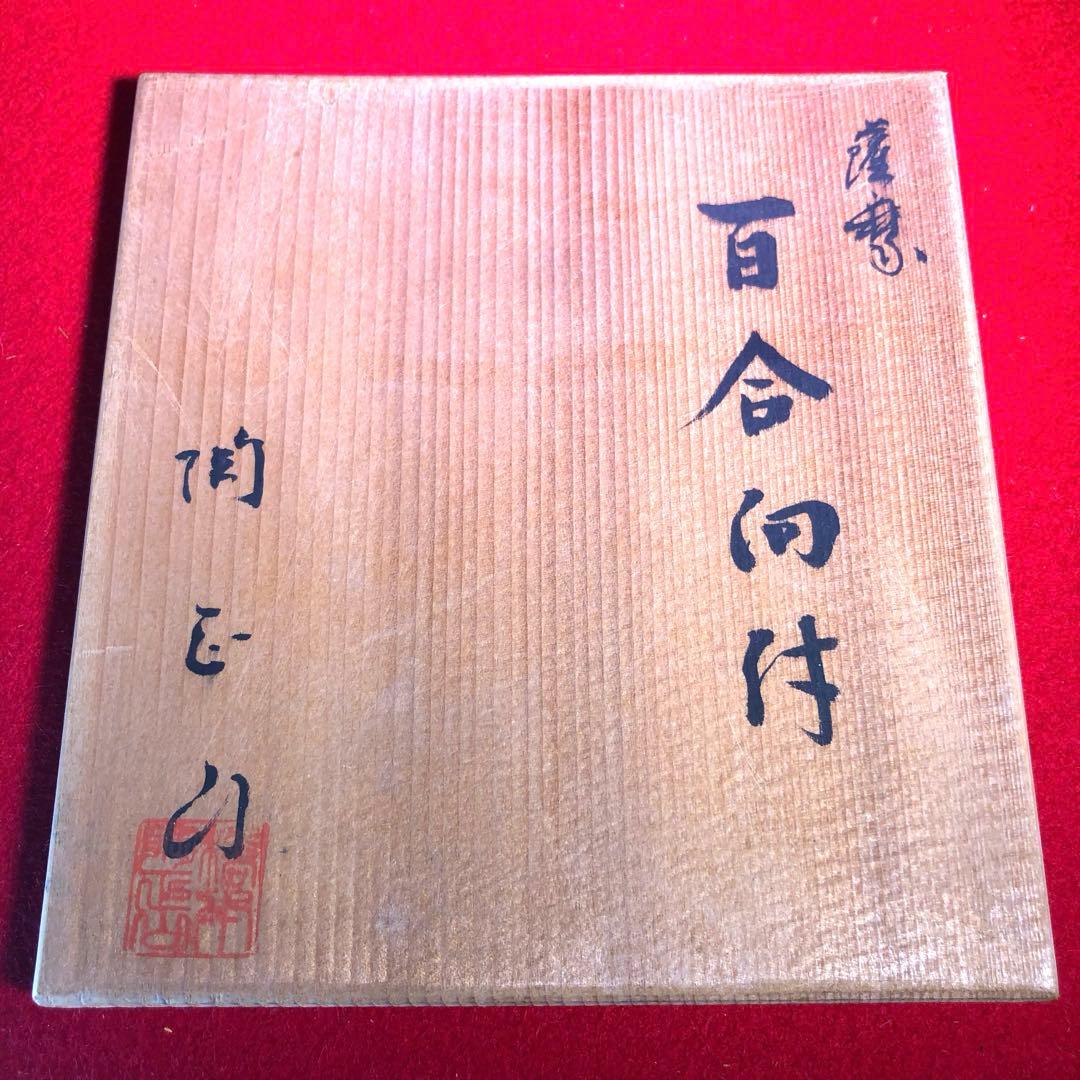 薩摩
百合向付
陶正山